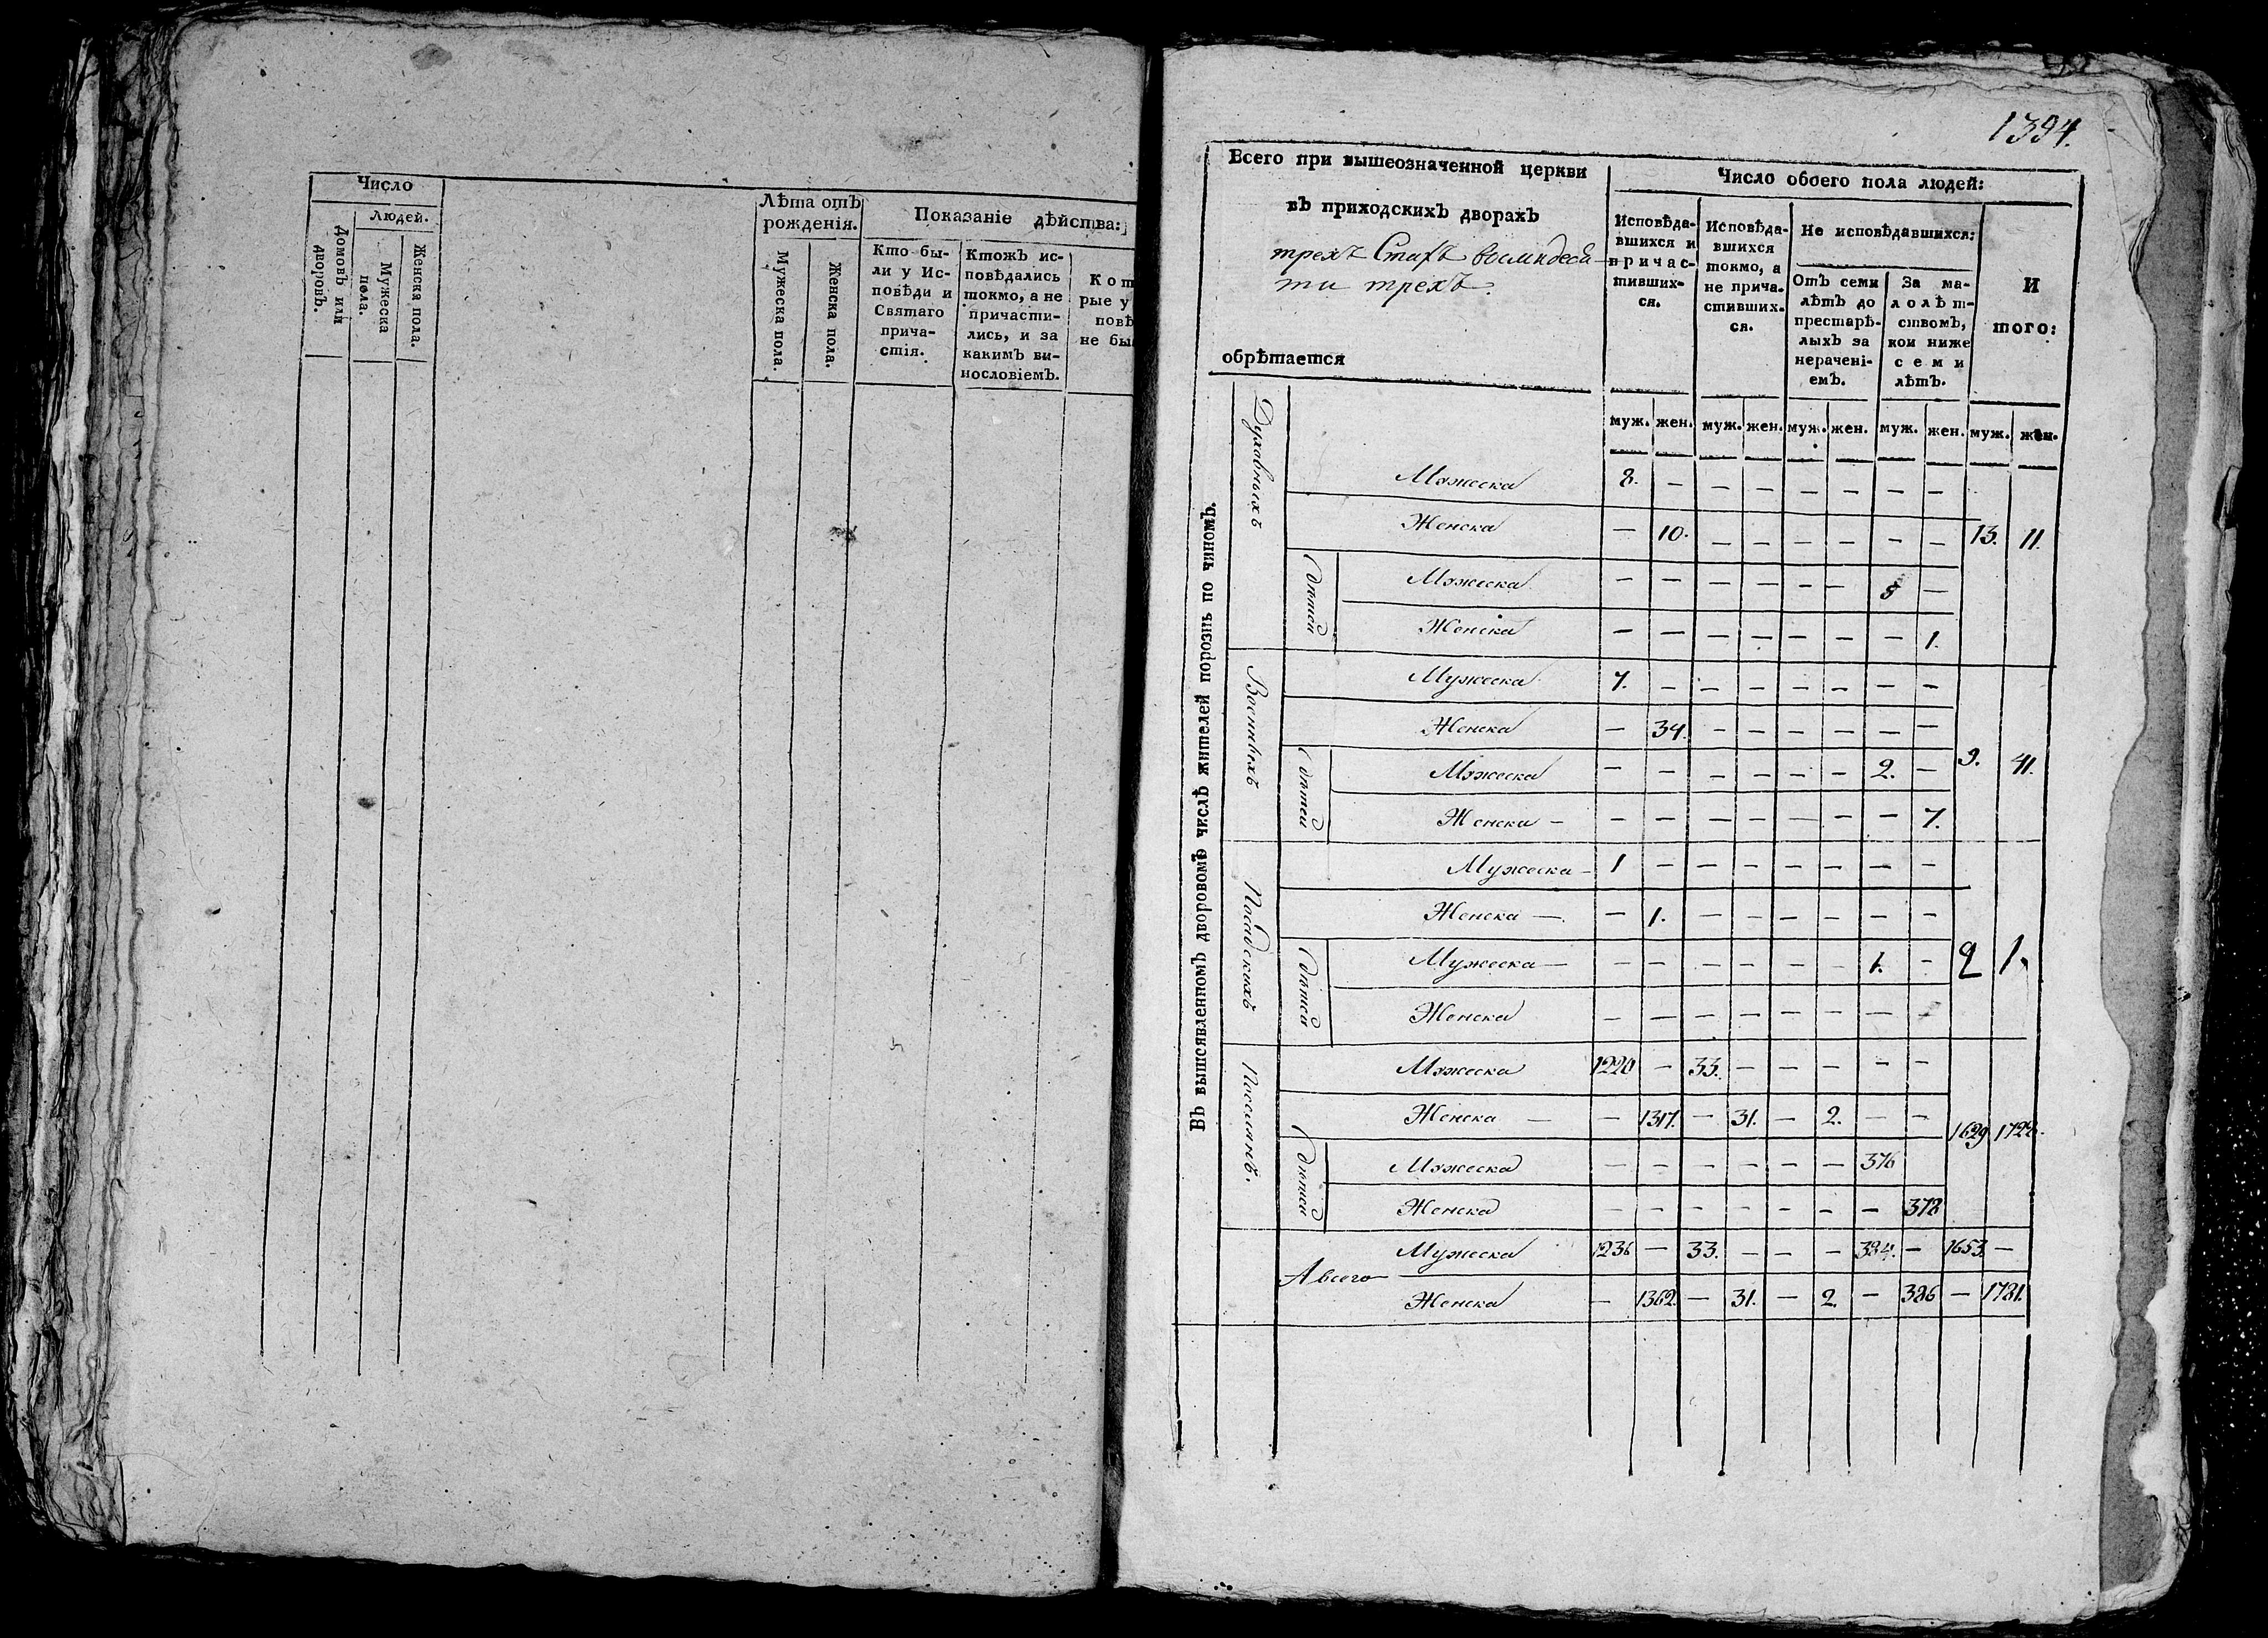 Число
Людей.
Домовъ или дворовъ.
Мужеска пола.
Женска пола.
Лѣта отъ
рожденія.
Мужеска пола.
Женска пола.
Показаніе дѣйства:
Кто бы-
ли у Ис-
повѣди и
Святаго
прича-
стія.
Ктожъ ис-
повѣдались
токмо, а не
причасти-
лись, и за
какимъ ви-
нословіемъ.
Кот
рые у
повѣ
не бы
1394.
Всего при вышеозначенной церкви
въ приходскихъ дворахъ
трехъ Стахъ восмидеся-
ти трехъ.
обрѣтается
Число обоего пола людей:
Исповѣда-
вшихся и
причас-
тивших-
ся.
Исповѣда-
вшихся
токмо, а
не прича-
стивших-
ся.
Не исповѣдавшихся:
Отъ семи
лѣтъ до
престарѣ-
лыхъ за
нерачені-
емъ.
За ма-
лолѣт-
ствомъ,
кои ниже
семи
лѣтъ.
И
того:
муж. жен. муж. жен. муж. жен. муж. жен. муж. жен.
Въ вышеявленномъ дворовомъ числѣ жителей порознь по чиномъ.
Духовныхъ
Мужеска 8. — — — — — — —
Женска — 10. — — — — — — 13. 11.
дѣтей
Мужеска — — — — — — 5 —
Женска — — — — — — — 1.
Военныхъ
Мужеска 7. — — — — — — —
Женска — 34. — — — — — —
дѣтей
Мужеска — — — — — — 2. — 9. 41.
Женска — — — — — — — — 7.
Посадскихъ
Мужеска — 1 — — — — — — —
Женска — — 1. — — — — — —
дѣтей
Мужеска — — — — — — — 1. — 2 1.
Женска — — — — — — — —
Поселянъ.
Мужеска 1220 — 33. — — — — —
Женска — — 1317. — 31. — 2. — — 1629 1728.
дѣтей
Мужеска — — — — — — 376
Женска — — — — — — — 378
А всего
Мужеска 1236 — 33. — — — 384. — 1653. —
Женска — 1362. — 31. — 2. — 386 — 1781.